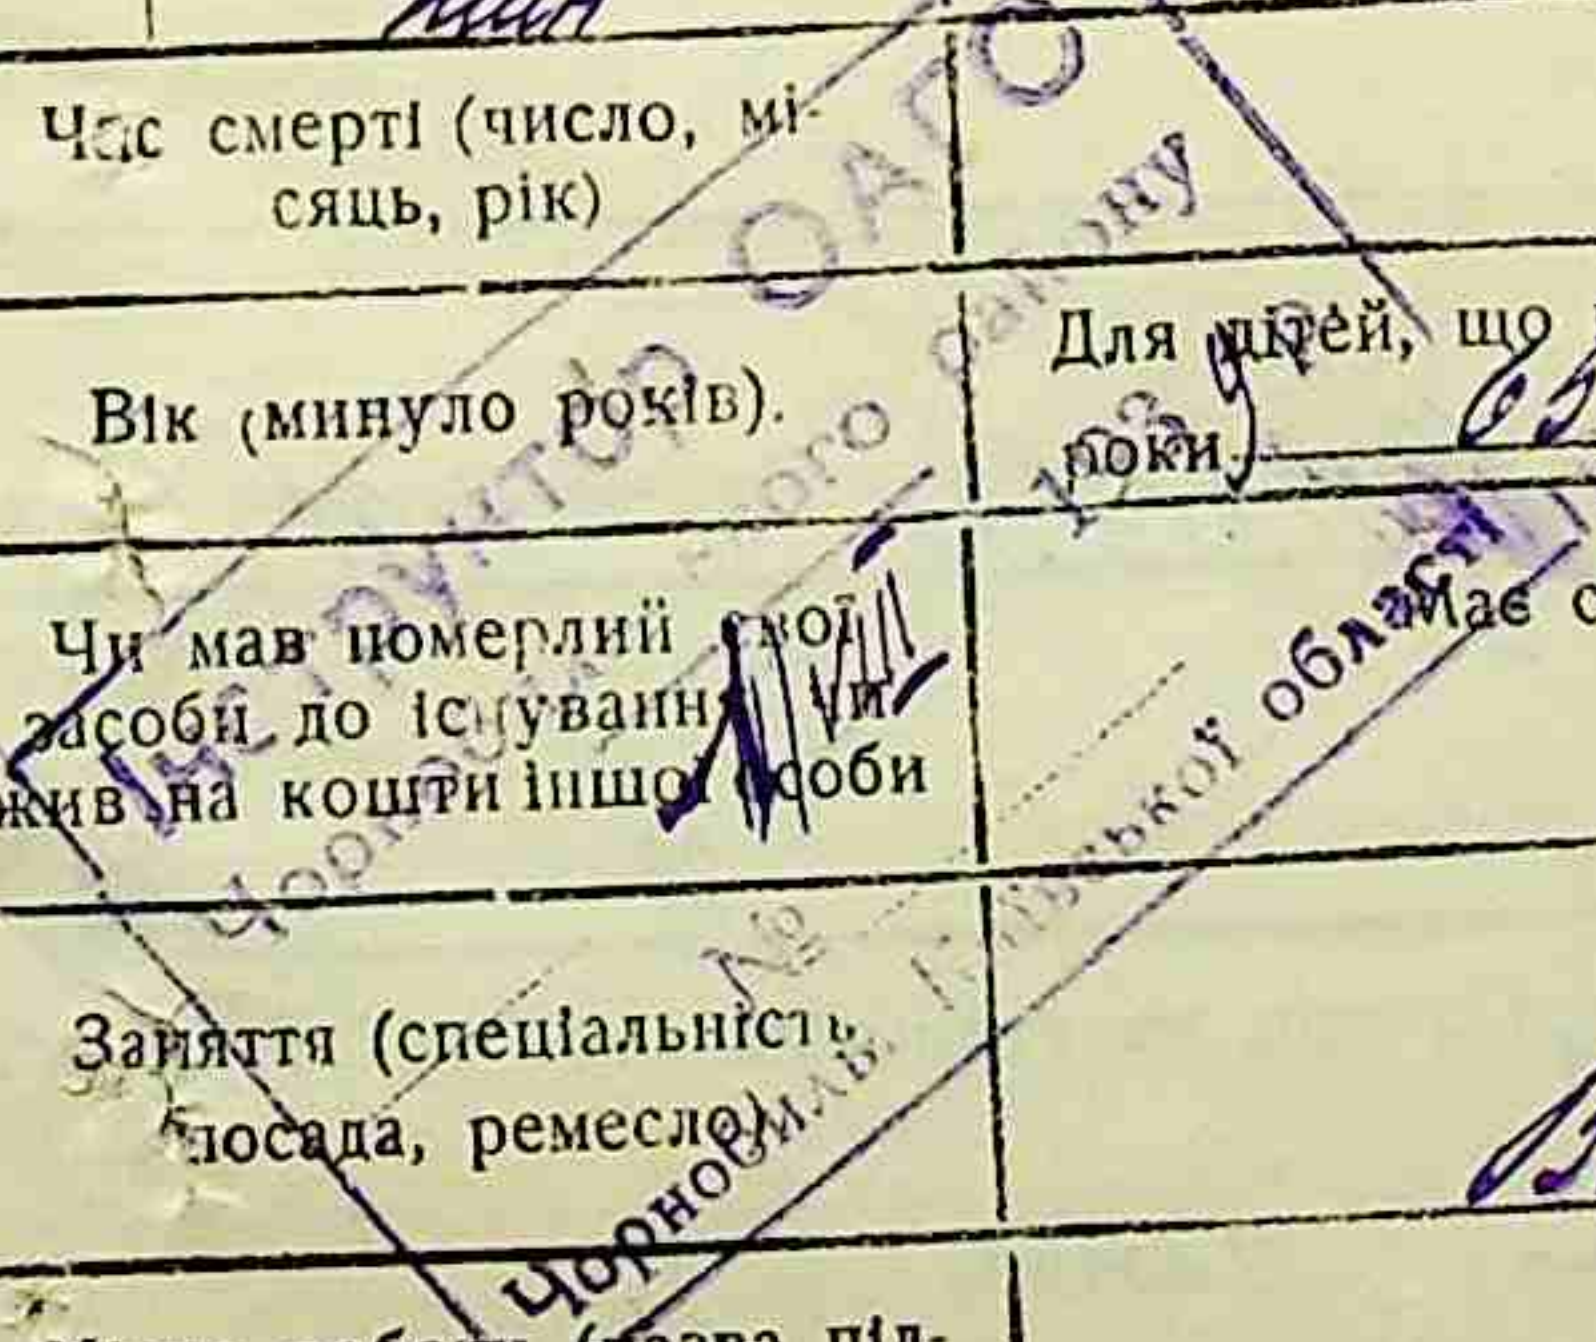 Час смерті (число, мі-
сяць, рік)
Вік (минуло років).
Для дітей, що
роки
Чи мав померлий свої
засоби до існування чи
жив на кошти іншої особи
Має
Заняття (спеціальність,
посада, ремесло)
(назва під-
Інспуктор ОАГС
Чорнобильського району
193 р.
VIII
№
Чорнобиль, Київської області